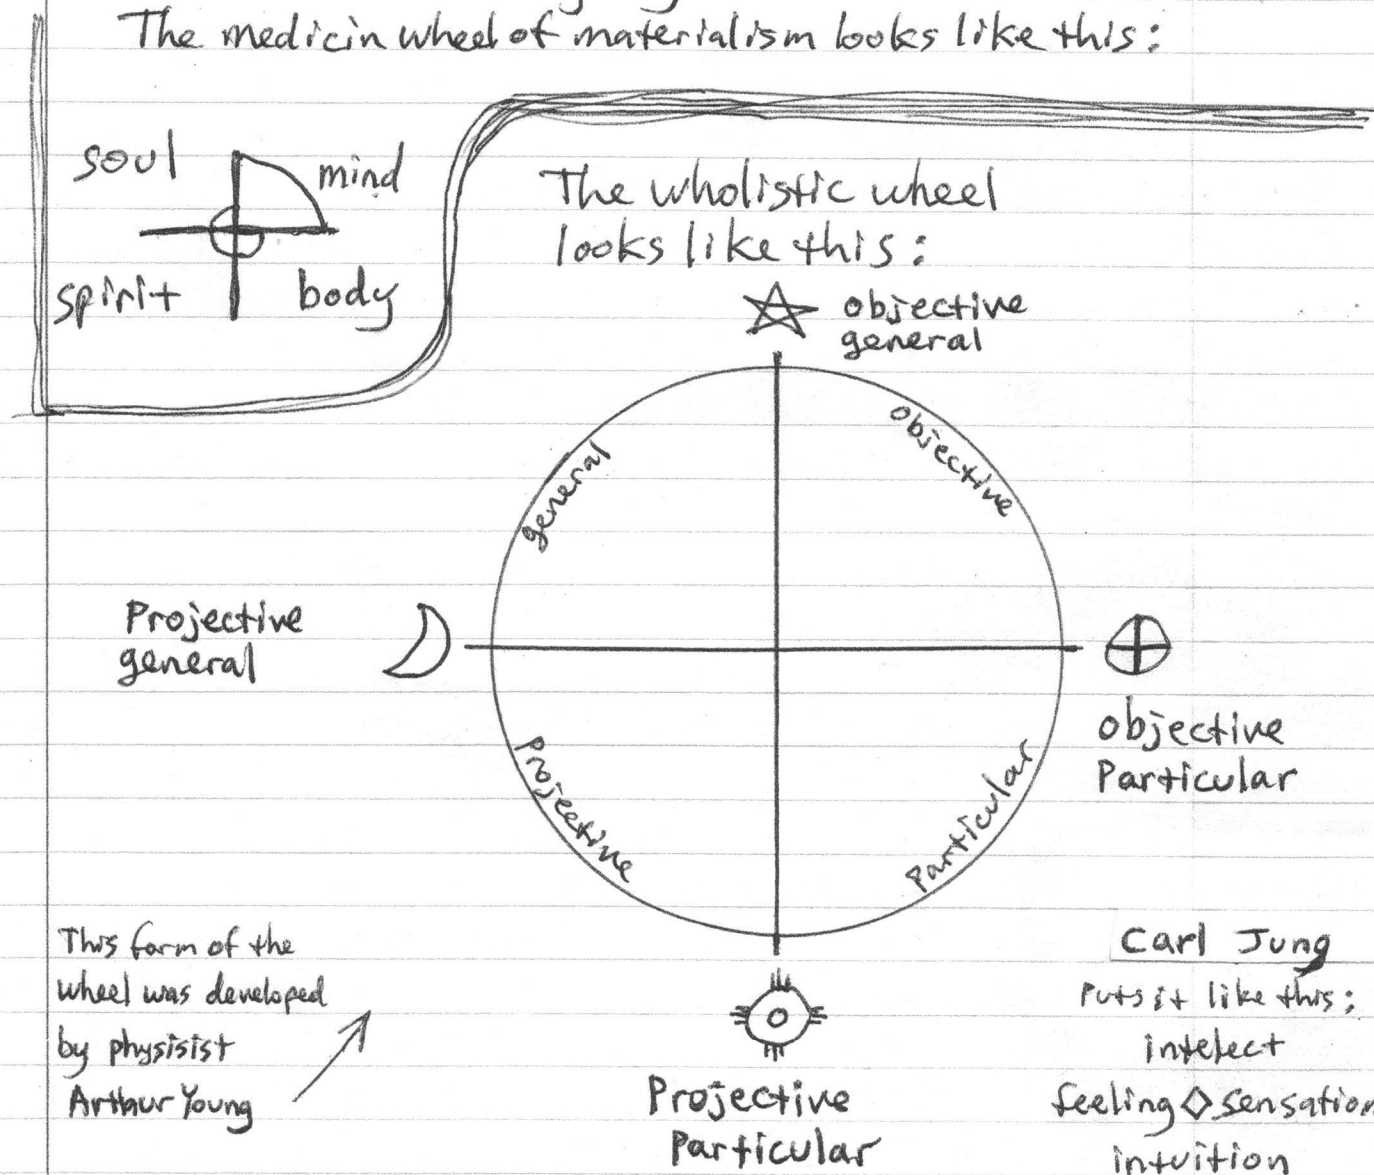 The medicin wheel of materialism looks like this:
soul
mind
spirit
body
The wholistic wheel
looks like this:
objective
general
general
objective
Projective
general
objective
Particular
Projective
Particular
This form of the
wheel was developed
by physisist
Arthur Young
Projective
Particular
Carl Jung
Puts it like this:
intelect
feeling ◇ sensation
intuition